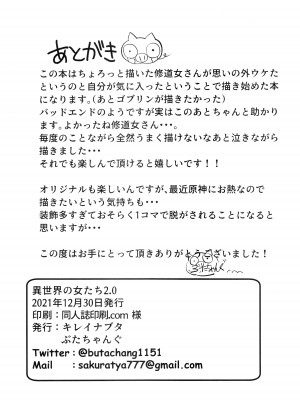 あとがき
この本はちょろっと描いた修道女さんが思いの外ウケた
というのと自分が気に入ったということで描き始めた本
になります。(あとゴブリンが描きたかった)
バッドエンドのようですが実はこのあとちゃんと助かり
ます。よかったね修道女さん・・・。
毎度のことながら全然うまく描けないなあと泣きながら
描きました・・・
それでも楽しんで頂けると嬉しいです!!
オリジナルも楽しいんですが、最近原神にお熱なので
描きたいという気持ちも・・・
装飾多すぎておそらく1コマで脱がされることになると
思いますが・・・
この度はお手にとって頂きありがとうございました!
ぶたちゃんぐ
異世界の女たち2.0
2021年12月30日発行
印刷:同人誌印刷.com 様
発行:キレイナブタ
ぶたちゃんぐ
Twitter:@butachang1151
Mail :sakuratya777@gmail.com